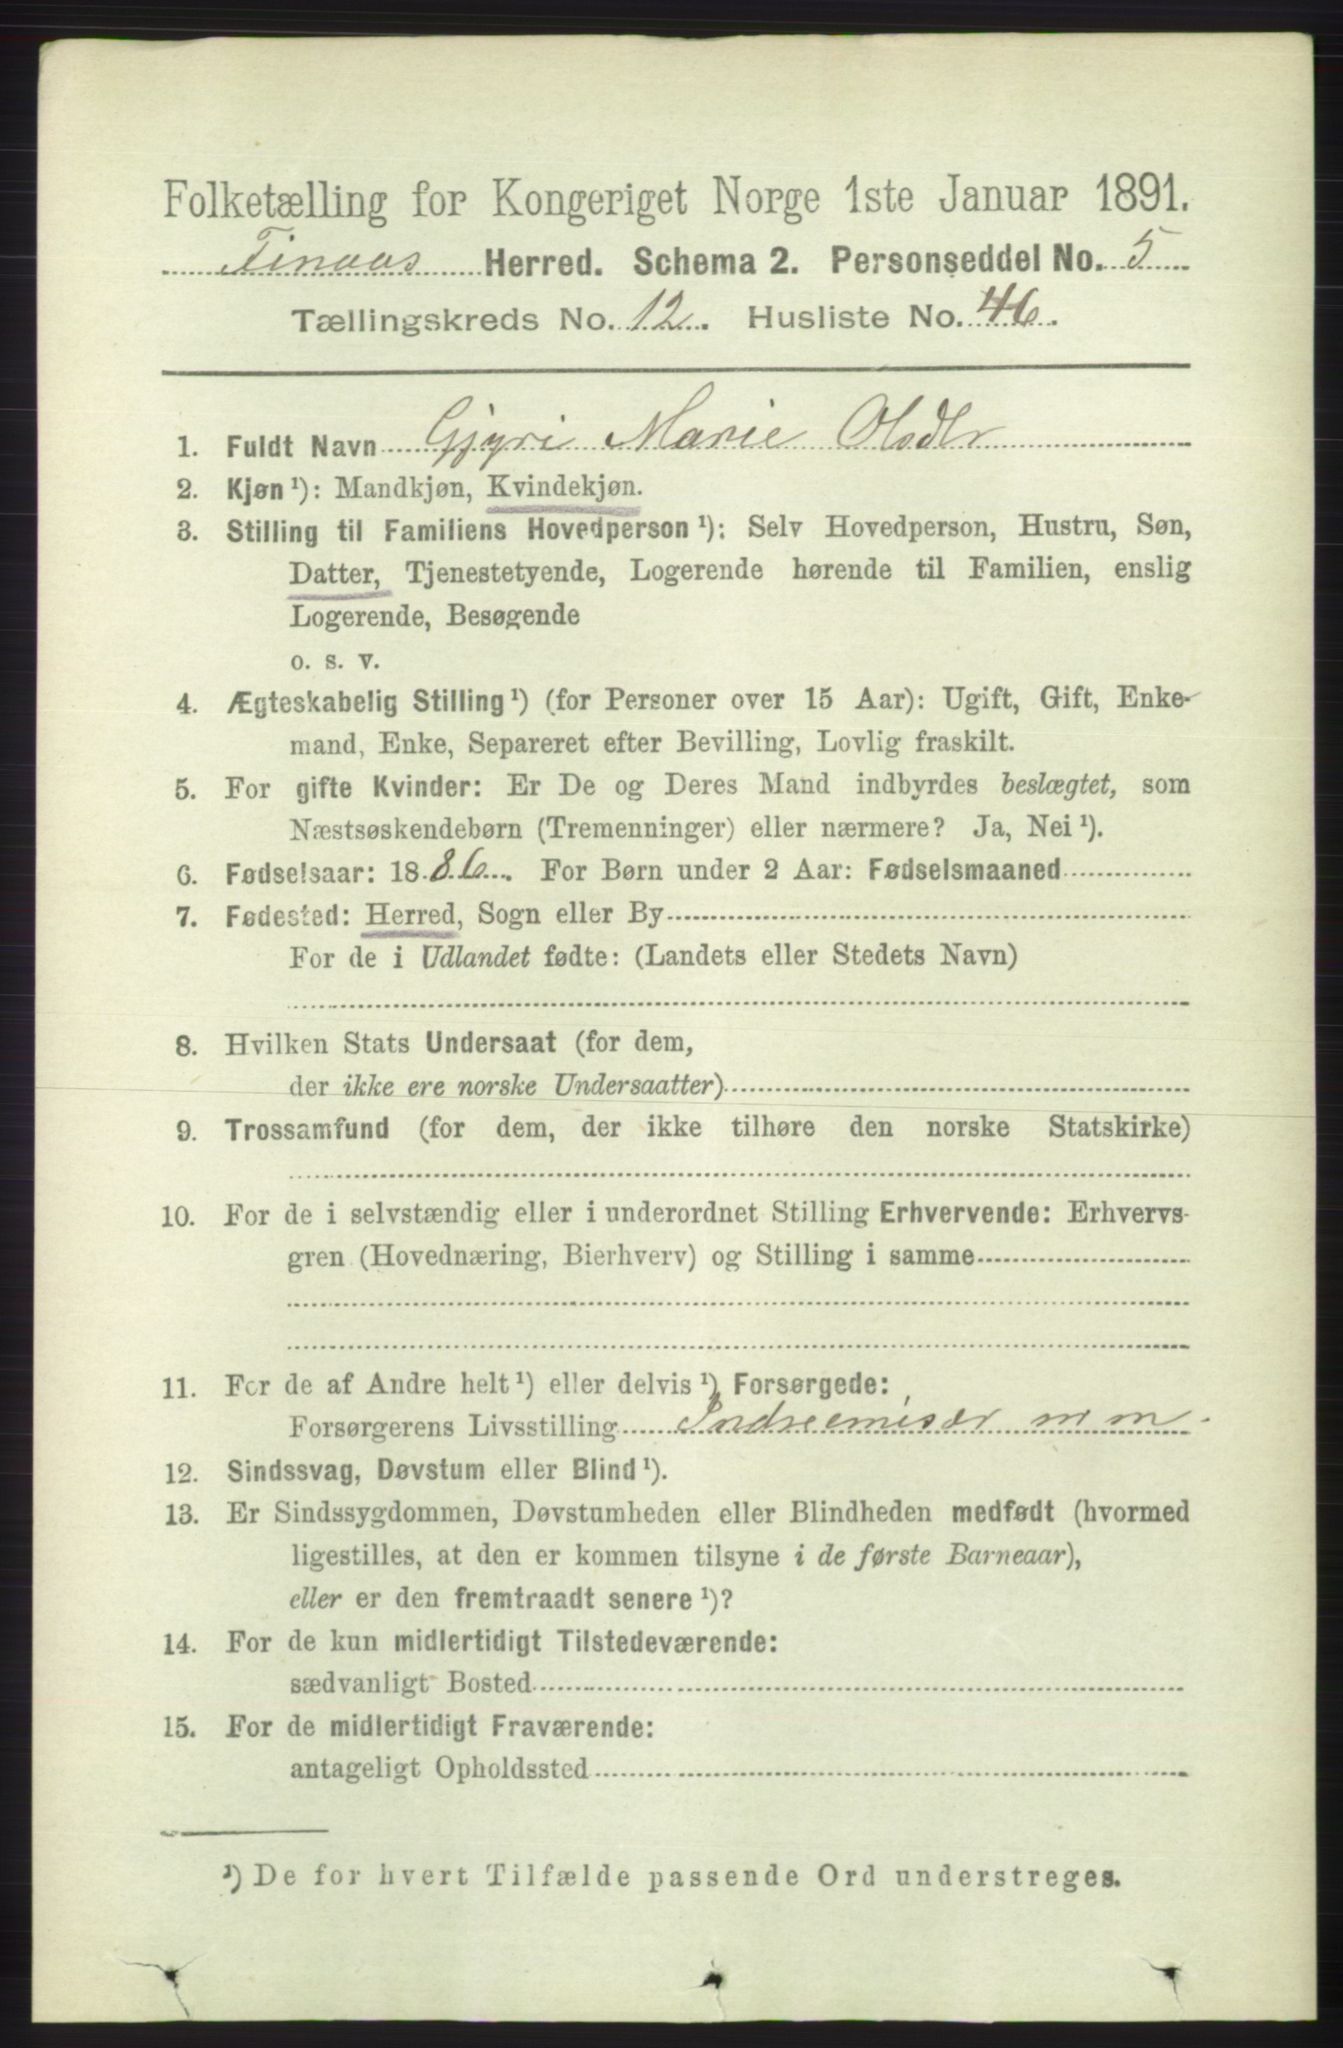 Folketælling for Kongeriget Norge 1ste Januar 1891.
Finaas Herred. Schema 2. Personseddel No. 5
Tællingskreds No. 12. Husliste No. 46.
1. Fuldt Navn Gjyri Marie Olsdtr
2. Kjøn¹): Mandkjøn, Kvindekjøn.
3. Stilling til Familiens Hovedperson¹): Selv Hovedperson, Hustru, Søn,
Datter, Tjenestetyende, Logerende hørende til Familien, enslig
Logerende, Besøgende
o. s. v.
4. Ægteskabelig Stilling¹) (for Personer over 15 Aar): Ugift, Gift, Enke-
mand, Enke, Separeret efter Bevilling, Lovlig fraskilt.
5. For gifte Kvinder: Er De og Deres Mand indbyrdes beslægtet, som
Næstsøskendebørn (Tremenninger) eller nærmere? Ja, Nei¹).
6. Fødselsaar: 1886. For Børn under 2 Aar: Fødselsmaaned
7. Fødested: Herred, Sogn eller By
For de i Udlandet fødte: (Landets eller Stedets Navn)
8. Hvilken Stats Undersaat (for dem,
der ikke ere norske Undersaatter)
9. Trossamfund (for dem, der ikke tilhøre den norske Statskirke)
10. For de i selvstændig eller i underordnet Stilling Erhvervende: Erhvervs-
gren (Hovednæring, Bierhverv) og Stilling i samme
11. For de af Andre helt¹) eller delvis¹) Forsørgede:
Forsørgerens Livsstilling Indremisær m m.
12. Sindssvag, Døvstum eller Blind¹).
13. Er Sindssygdommen, Døvstumheden eller Blindheden medfødt (hvormed
ligestilles, at den er kommen tilsyne i de første Barneaar),
eller er den fremtraadt senere¹)?
14. For de kun midlertidigt Tilstedeværende:
sædvanligt Bosted
15. For de midlertidigt Fraværende:
antageligt Opholdssted
¹) De for hvert Tilfælde passende Ord understreges.